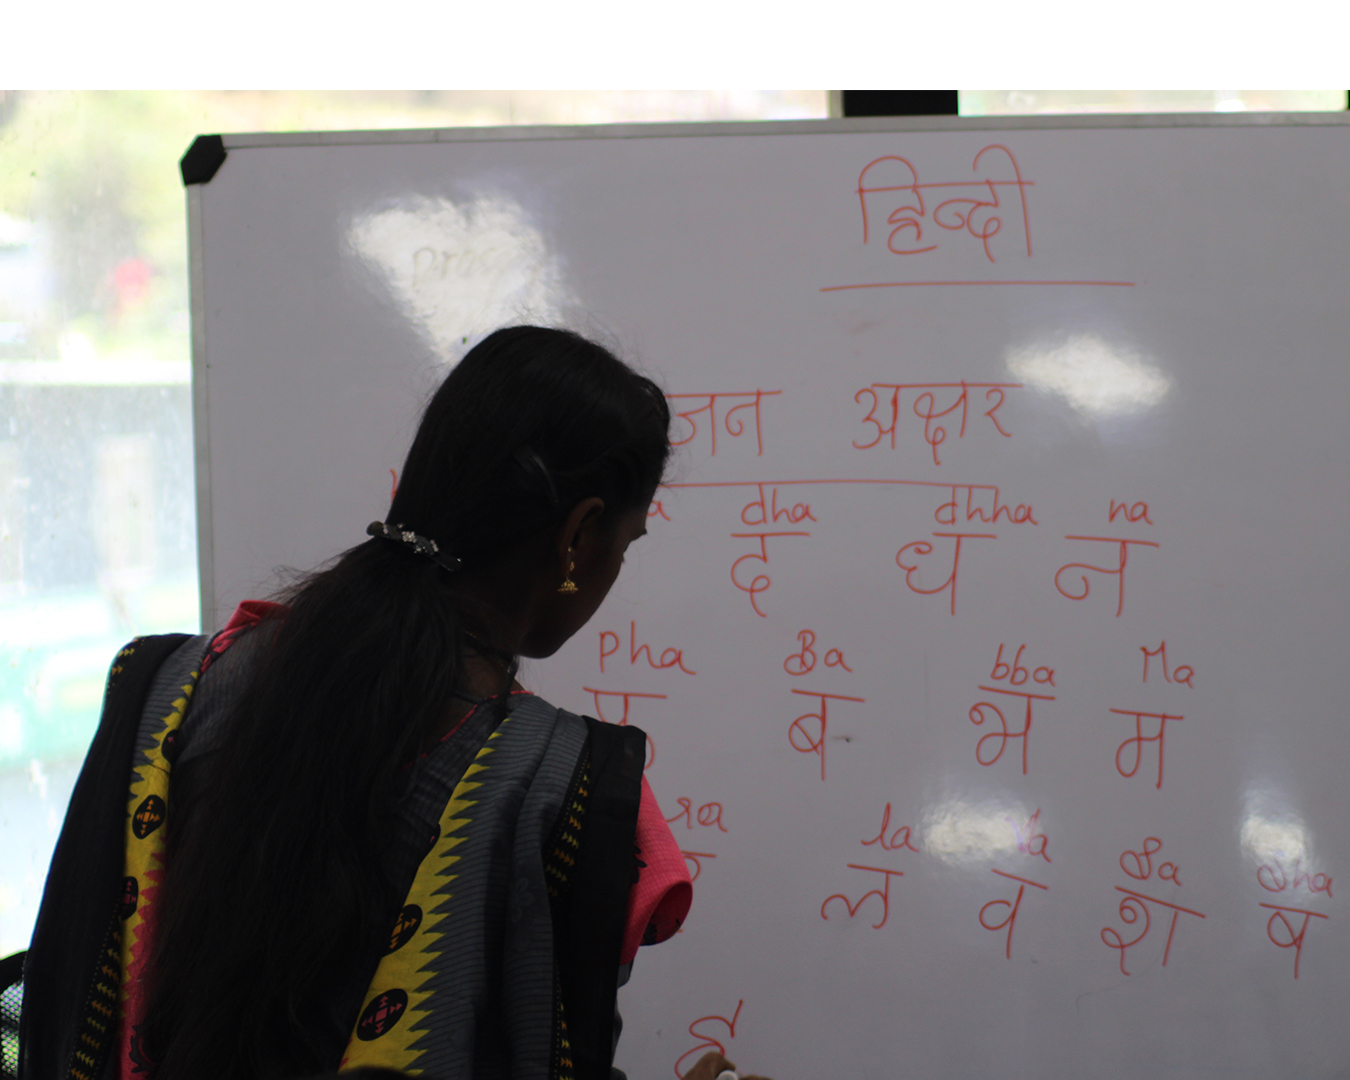 हिन्दी
अक्षर
dha dhha na
द ध न
Pha Ba bba Ma
ब भ म
ra la Sa sha
ल व श ष